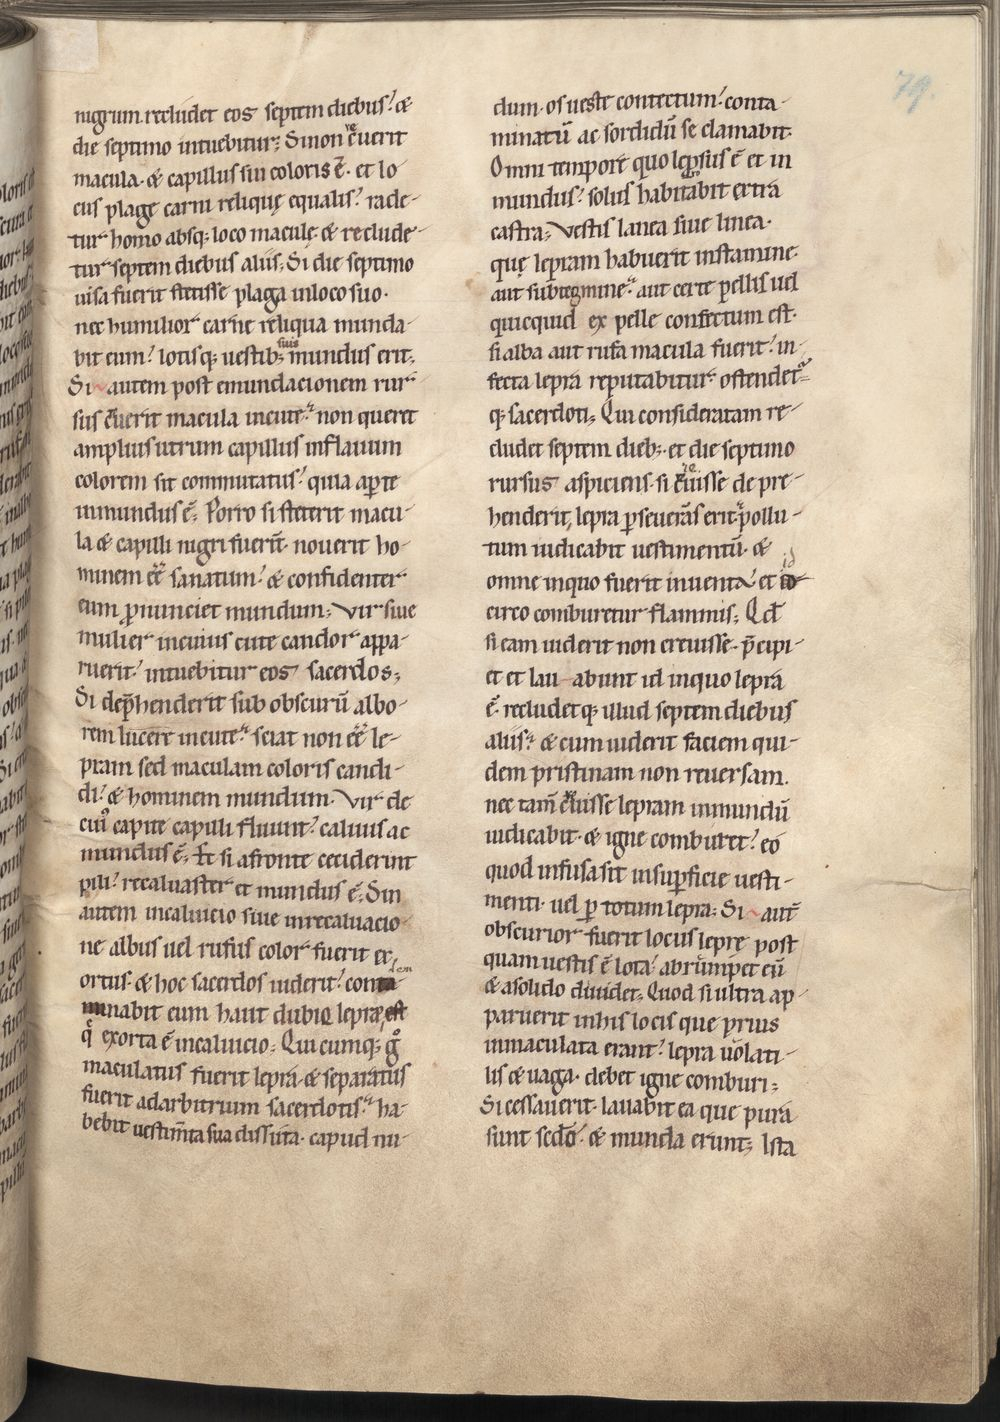 79.
nigrum. recludet eos septem diebus? &
die septimo intuebitur; Si non c̄uerit
macula. & capillus sui coloris ē. et lo
cus plagę carni reliquę equalis? rade-
tur homo absq; loco maculę & reclude-
tur septem diebus aliis; Si die septimo
uisa fuerit stetisse plaga in loco suo.
nec humilior carne reliqua munda-
bit eum? lotisq; uestib; suis mundus erit;
Si autem post emundacionem rur
sus c̄uerit macula in cute? non queret
amplius utrum capillus in flauum
colorem sit commutatus? quia aperte
inmundus ē; Porro si steterit macu-
la & capilli nigri fuerit̄. nouerit ho-
minem eē̄ sanatum? & confidenter
eum ꝓnunciet mundum; Vir siue
mulier in cuius cute candor appa-
ruerit? intuebitur eos sacerdos;
Si dep̄henderit sub obscurū albo-
rem lucere in cute? sciat non eē̄ le-
pram sed maculam coloris candi-
di? & hominem mundum. Vir de
cui᷒ capite capilli fluunt? caluus ac
mundus ē; Et si a fronte ceciderint
pili? recaluaster et mundus ē; Sin
autem in caluicio siue in recaluacio-
ne albus uel rufus color fuerit ex,
ortus. & hoc sacerdos uiderit? conta
minabit eum haut dubię leprę, est
q̄ exorta ē in caluicio; Quicumq; g̊
maculatus fuerit lepra & separatus
fuerit ad arbitrium sacerdotis? ha-
bebit uestim̄ta sua dissuta. capud nu-
dum. os ueste contectum? conta-
minatū ac sordidū se clamabit.
Omni tempore quo lep̄sus ē et in
mundus? solus habitabit extra
castra; Vestis lanea siue linea.
quę lepram habuerit in stamine.
aut subtegmine? aut certe pellis uel
quicquid ex pelle confectum est.
si alba aut rufa macula fuerit? in-
fecta lepra reputabitur ostendet̄-
q; sacerdoti; Qui consideratam re-
cludet septem dieb;. et die septimo
rursus aspiciens. si c̄uisse depre-
henderit, lepra ꝑseuerās erit. pollu-
tum iudicabit uestimentū. &
omne in quo fuerit inuenta et id
circo comburetur flammis; Qd̄
si eam uiderit non creuisse. p̄cipi-
et et lau abunt id in quo lepra
ē. recludetq; illud septem diebus
aliis? & cum uiderit faciem qui-
dem pristinam non reuersam.
nec tam̄ c̄uisse lepram inmundū
iudicabit. & igne comburet? eo
quod infusa sit in suꝑficie uesti-
menti. uel ꝑ totum lepra; Si aut̄
obscurior fuerit locus leprę post
quam uestis ē lota? abrumpet eū
& a solido diuidet; Quod si ultra ap-
paruerit in his locis que prius
inmaculata erant? lepra uolati-
lis & uaga. debet igne comburi;
Si cessauerit. lauabit ea que pura
sunt secd̄o. & munda erunt; Ista